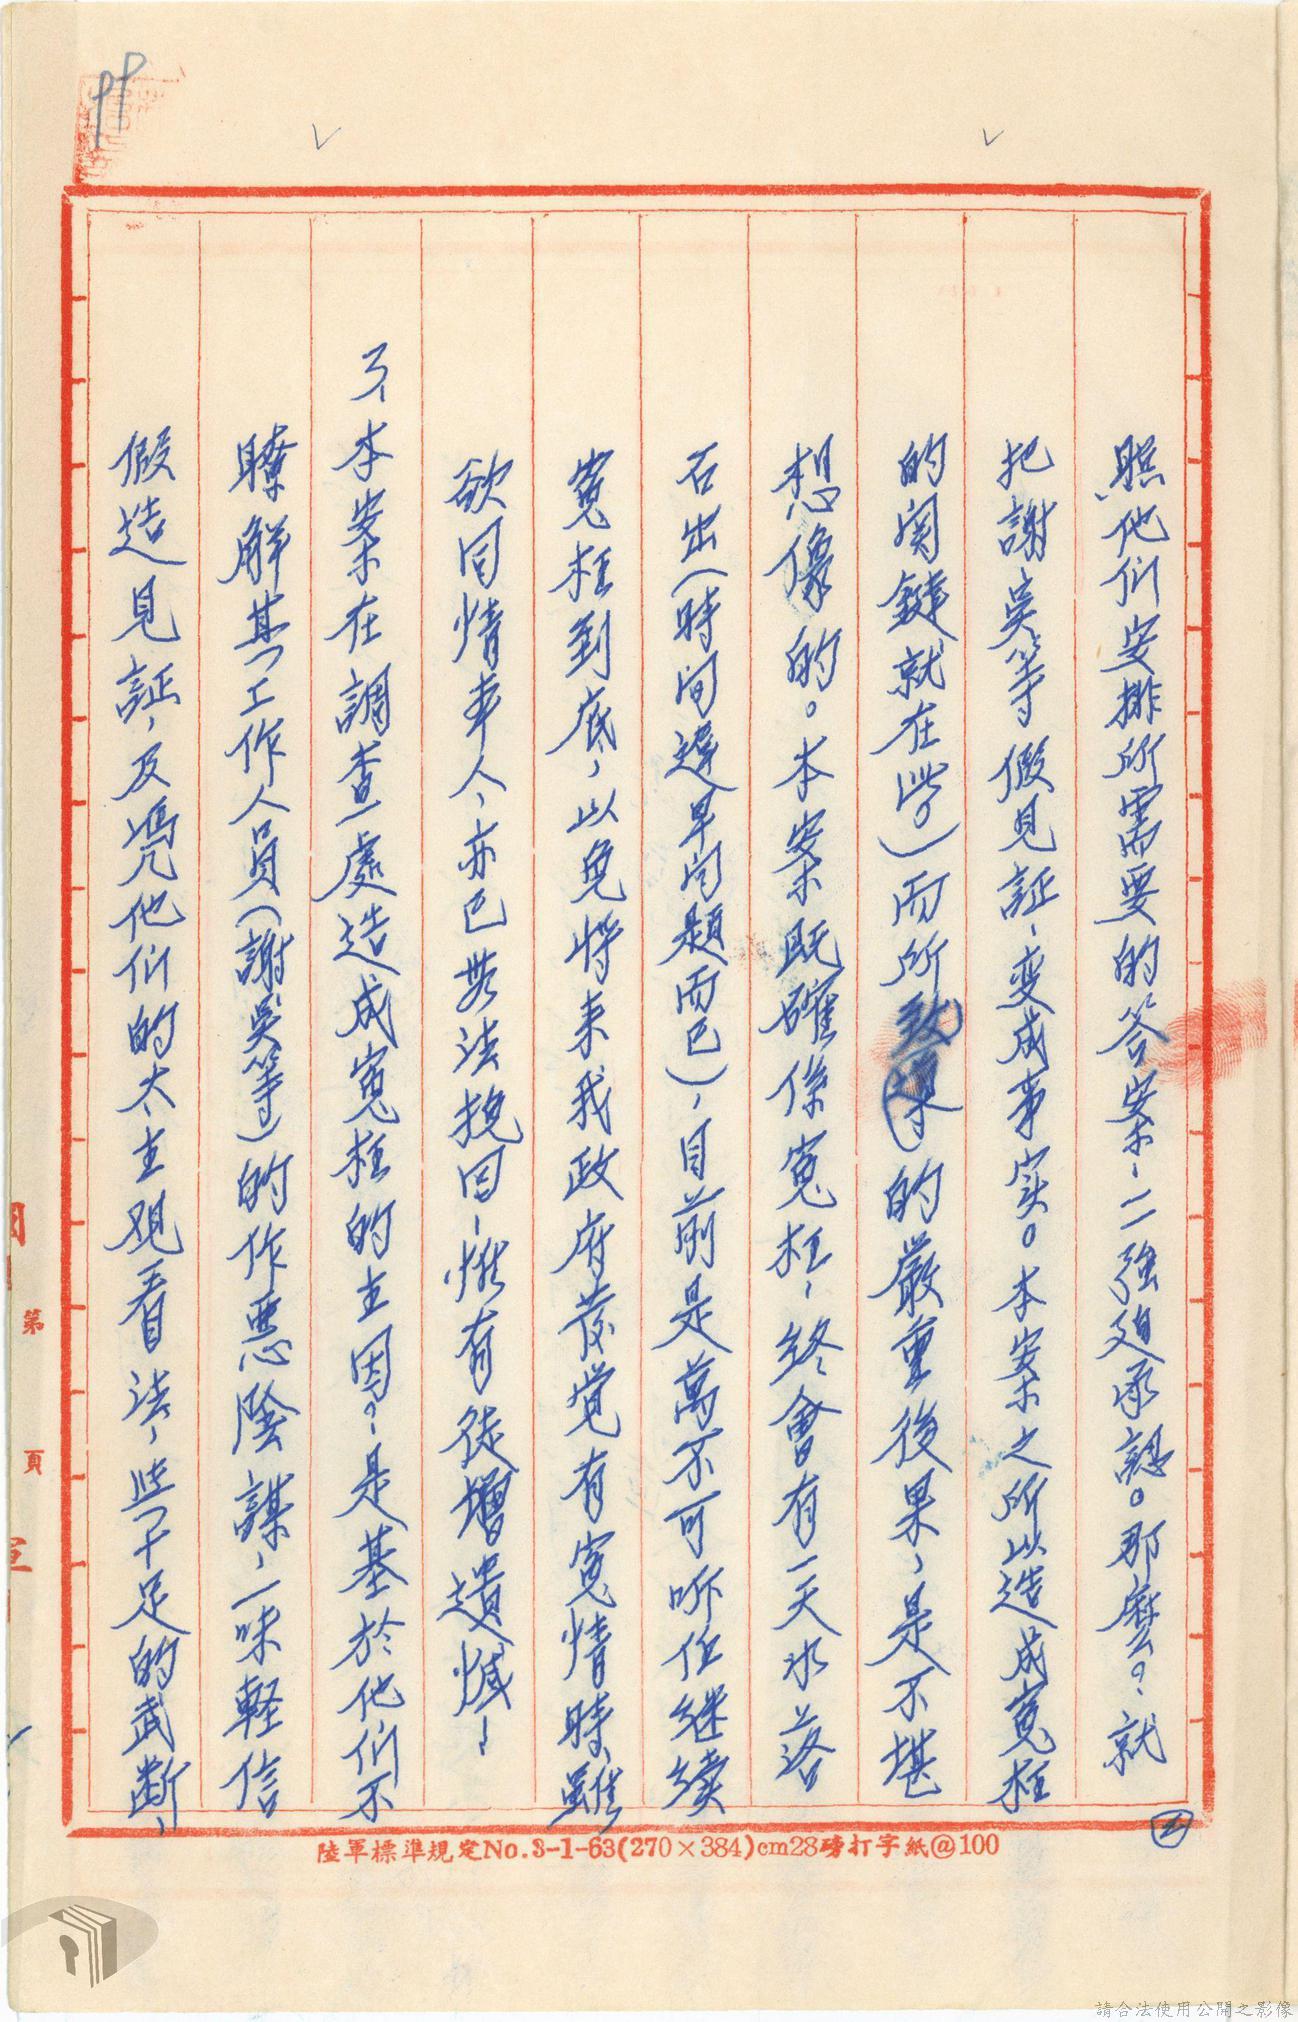 照他们安排所需要的答案、二強迫承認。那麼？、就
把謝吳等假見証、变成事实。本案之所以造成寃枉
的関鍵就在此。）而所致導的嚴重後果，是不堪
想像的。本案既確係寃枉，終會有一天水落
石出（時间遲早问題而已），目前是萬不可听任継续
寃枉到底，以免将来我政府发觉有寃情時，雖
欲同情車人、亦已无法挽回，惟有徒增遺憾！
3、本案在調查處造成寃枉的主因？、是基於他们不
瞭解基“工作人員（謝吳等）的作惡陰謀，一味軽信
假造見証，及馮凡他们的太主观看法，些“十足的武断，
陸軍標準規定No.3-1-63(270×384)cm28磅打字紙@100
第 頁
請合法使用公開之影像